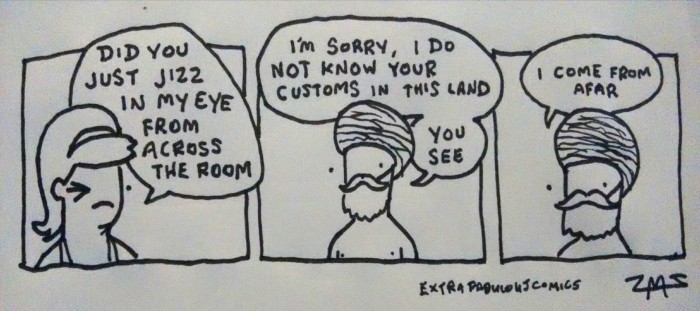 DID YOU
JUST JIZZ
IN MY EYE
FROM
ACROSS
THE ROOM
I'M SORRY, I DO
NOT KNOW YOUR
CUSTOMS IN THIS LAND
YOU
SEE
I COME FROM
AFAR
EXTRAFABULOUSCOMICS
ZMS